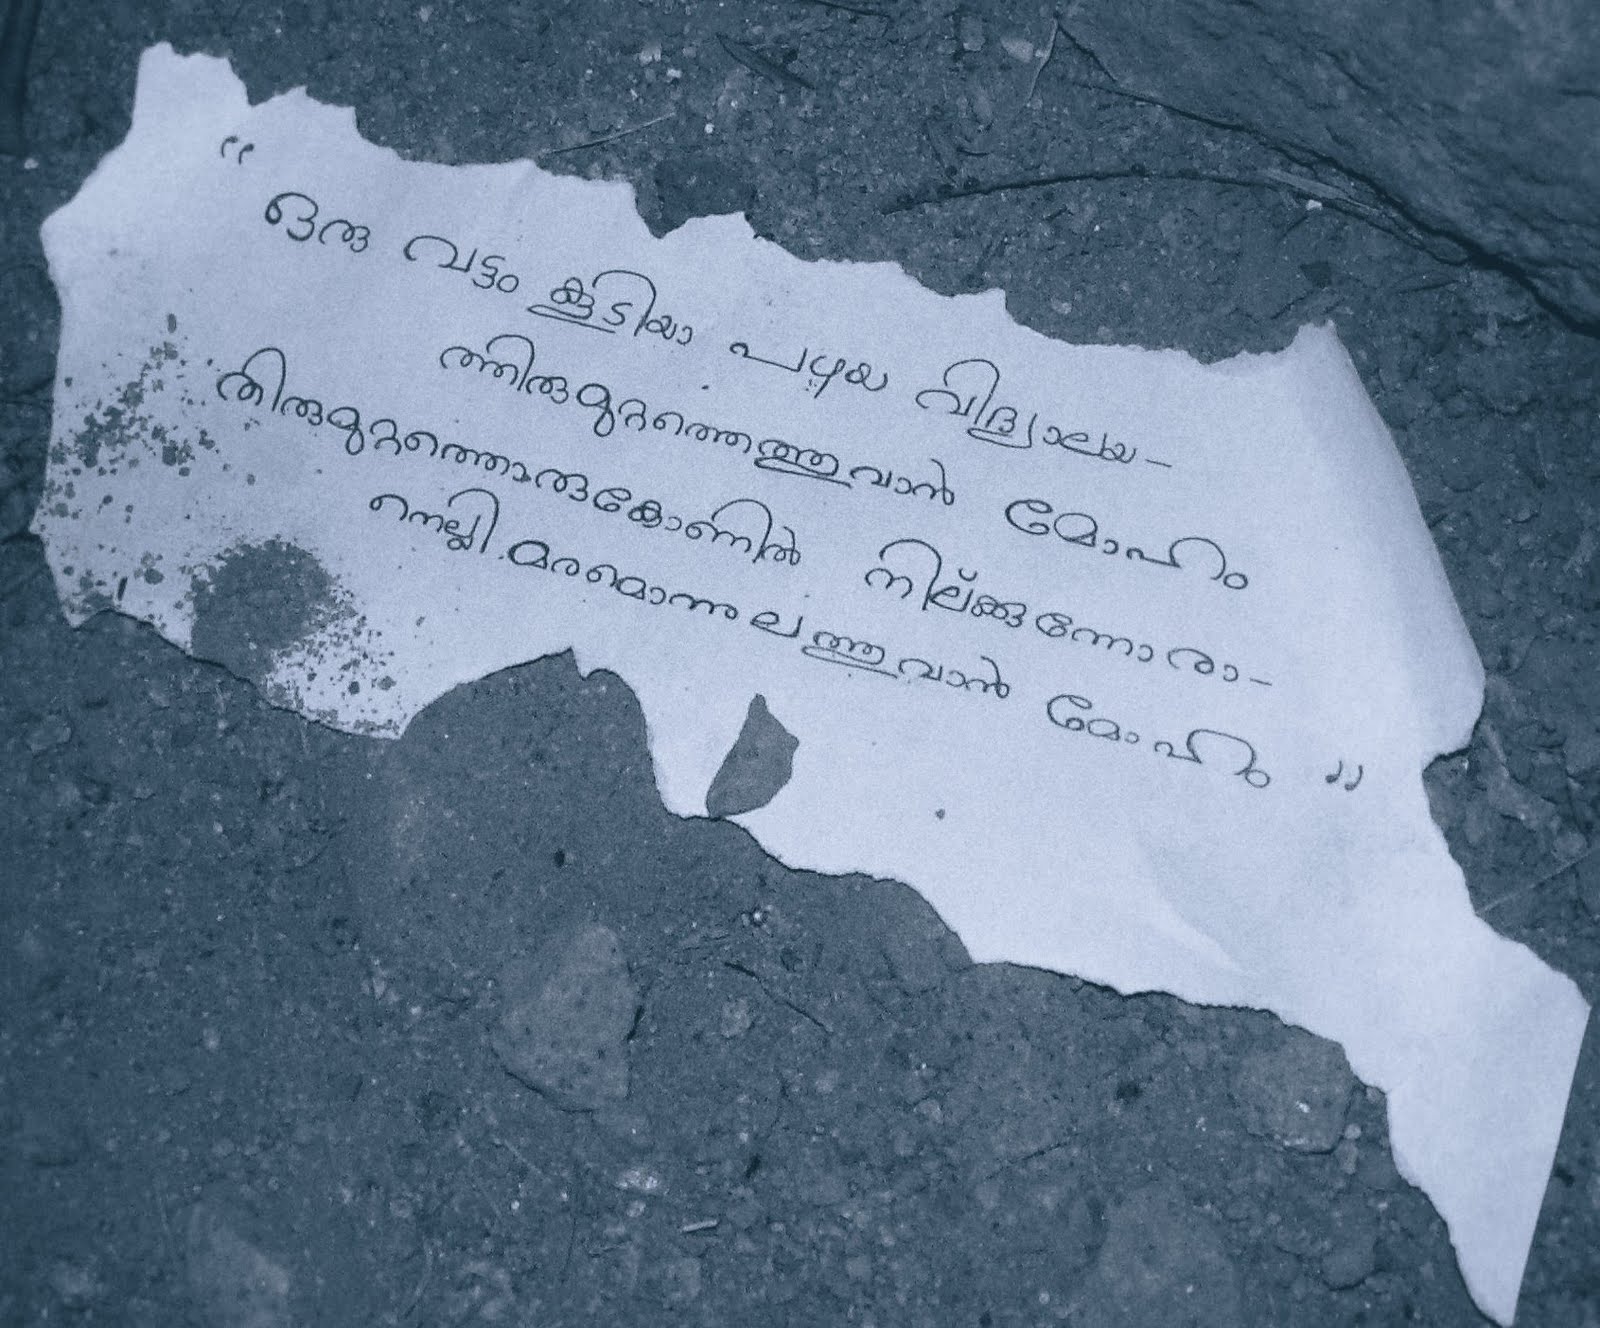 “
ഒരു വട്ടം കൂടിയാ പഴയ വിദ്യാലയ–
ത്തിരുമുറ്റത്തെത്തുവാൻ മോഹം
തിരുമുറ്റത്തൊരുകോണിൽ നില്ക്കുന്നോരാ–
നെല്ലി മരമൊന്നുലത്തുവാൻ മോഹം ”